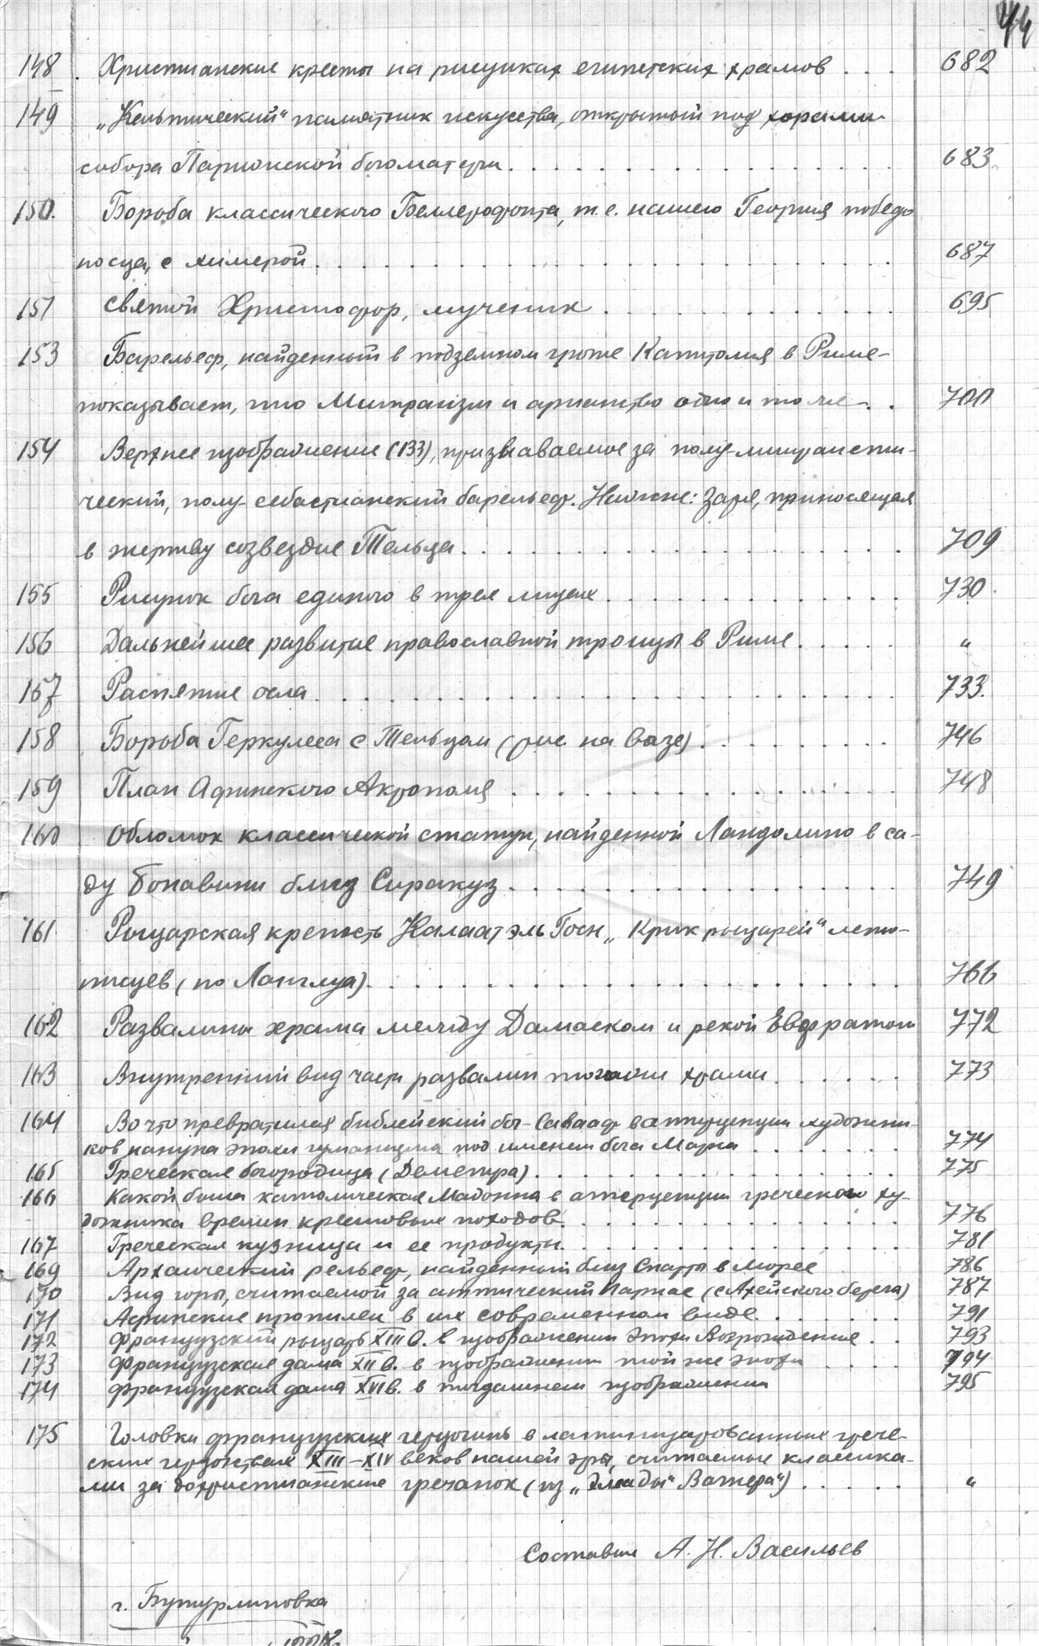 44
148 . Христианские кресты на рисунках египетских храмов . . . 682
149 „Кельтический" памятник искусства, открытый под хорами
собора Парижской богоматери . . . 683.
150. Борьба классического Беллерофонта, т.е. нашего Георгия победо
носца, с химерой . . . 687
151 Святой Христофор, мученик . . . 695
153 Барельеф, найденный в подземном гроте Капитолия в Риме-
показывает, что Митраизм и арианство одно и то же . . 700
154 Верхнее изображение (133), признаваемое за полу-митраисти-
ческий, полу-себастианский барельеф. Нижнее: Заря, приносящая
в жертву созвездие Тельца . . . 709
155 Рисунок бога единого в трех лицах . . . 730
156 Дальнейшее развитие православной троицы в Риме . . . "
157 Распятие осла . . . 733.
158 Борьба Геркулеса с Тельцом (рис. на вазе) . . . 746
159 План Афинского Акрополя . . . 748
160 Обломок классической статуи, найденной Ландолино в са-
ду Бонавини близ Сиракуз . . . 749
161 Рыцарская крепость Калаат эль Госн „Крик рыцарей" лето-
писцев (по Ланглуа) . . . 766
162 Развалины храма между Дамаском и рекой Евфратом 772
163 Внутренний вид части развалин того же храма . . . 773
164 Во что превратился библейский бог-Саваоф в аттрупции художни-
ков кануна эпохи гуманизма под именем бога Марка . . . 774
165 Греческая богородица (Деметра) . . . 775
166 Какой была католическая Мадонна в интерпреции греческого ху-
дожника времен крестовых походов . . . 776
167 Греческая кузница и ее продукты . . . 781
169 Архаический рельеф, найденный близ Спарты в Морее 786
170 Вид горы, считаемой за аттический Парнас (с Ахейского берега) 787
171 Афинские пропилеи в их современном виде . . . 791
172 Французский рыцарь XIII в. в изображении эпохи Возрождения . . 793
173 Французская дама XII в. в изображении той же эпохи . . . 794
174 Французская дама XVI в. в тогдашнем изображении 795
175 Головки французских герцогинь в латинизированных грече-
ских герцогствах XIII–XIV веков нашей эры, считаемые классика-
ми за дохристианские гречанок (из „Эллады" Вагнера") . . . "
Составил А. Н. Васильев
г. Бутурлиновка